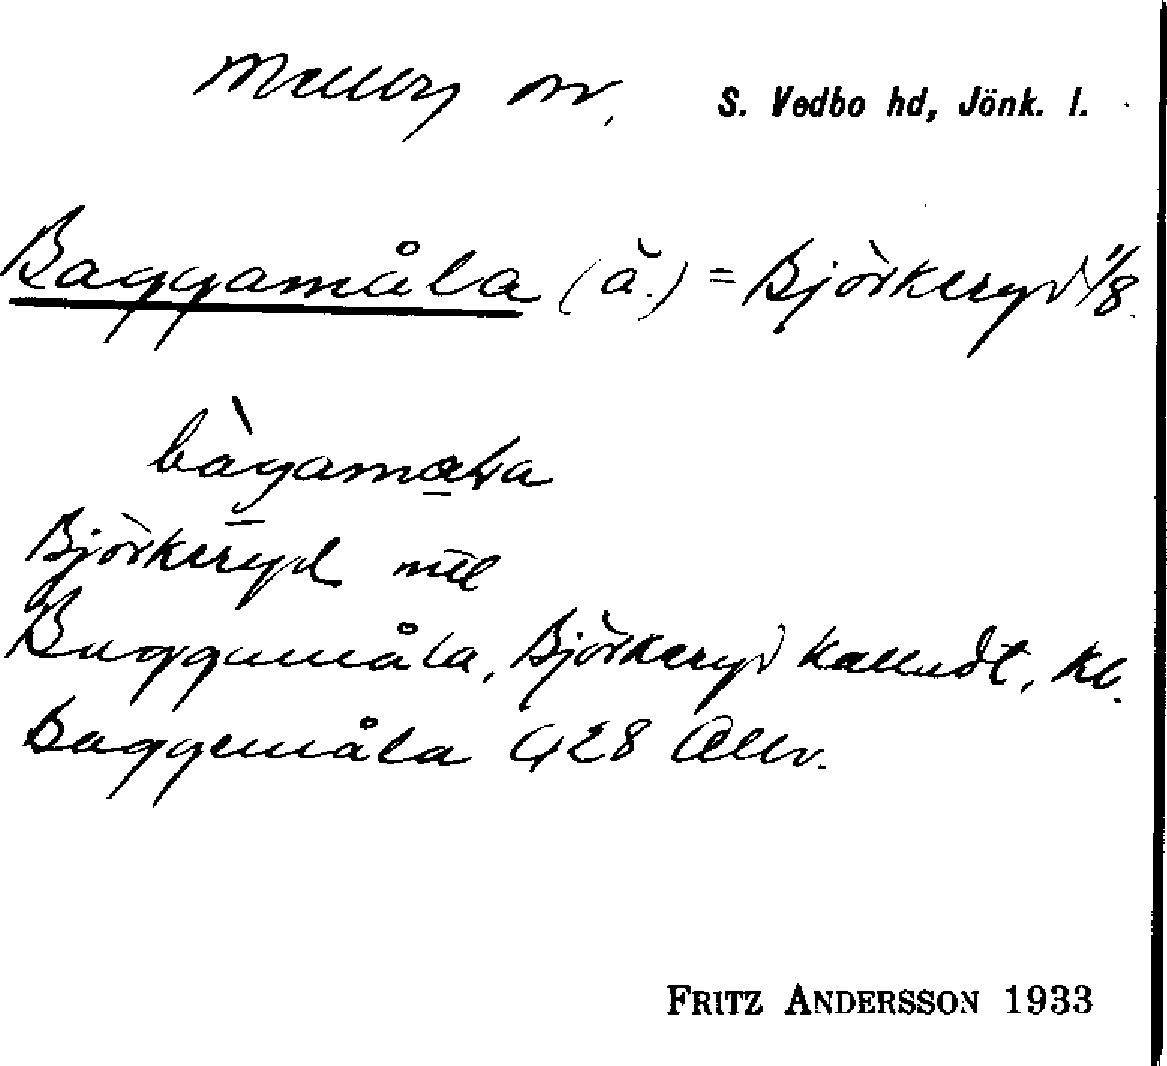 Mellby sn. S. Vedbo hd, Jönk. l.
Baggamåla (ä.) = Björkeryd 1/8.
bàgamala
Björkeryd
Baggamåla, Björkeryd kalladt, kl.
Baggemåla G28 Allv.
FRITZ ANDERSSON 1933